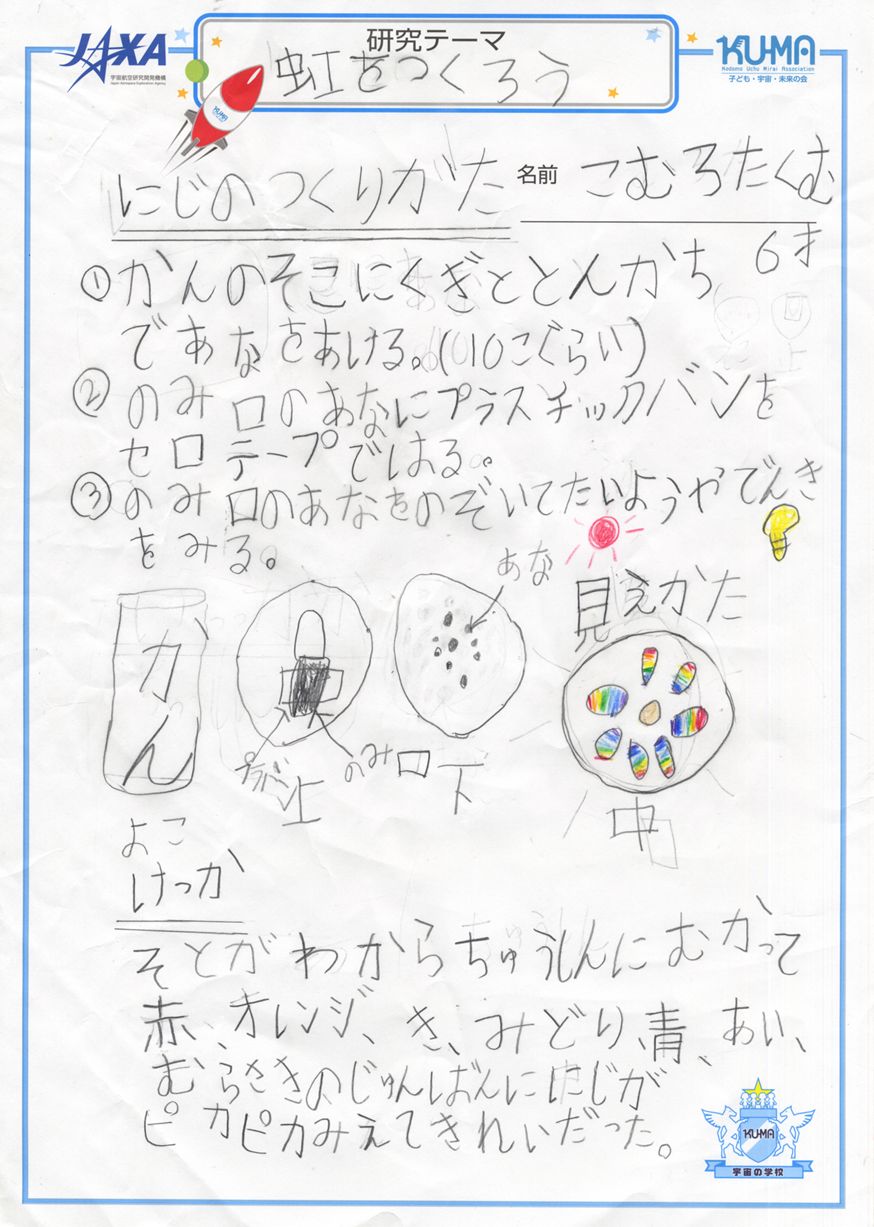 JAXA
宇宙航空研究開発機構
Japan Aerospace Exploration Agency
研究テーマ
虹をつくろう
KUMA
Kodomo Uchu Mirai Association
子ども・宇宙・未来の会
KUMA
にじのつくりがた
名前 こむろたくむ
6才
①かんのそこにくぎととんかち
であなをあける。(10こぐらい)
②のみ口のあなにプラスチックバンを
セロテープではる。
③のみ口のあなをのぞいてたいようやでんき
をみる。
あな
見えかた
かん
プラバン
のみ口
上
下
中
よこ
けっか
そとがわからちゅうしんにむかって
赤、オレンジ、き、みどり、青、あい、
むらさきのじゅんばんににじが
ピカピカみえてきれいだった。
KUMA
宇宙の学校